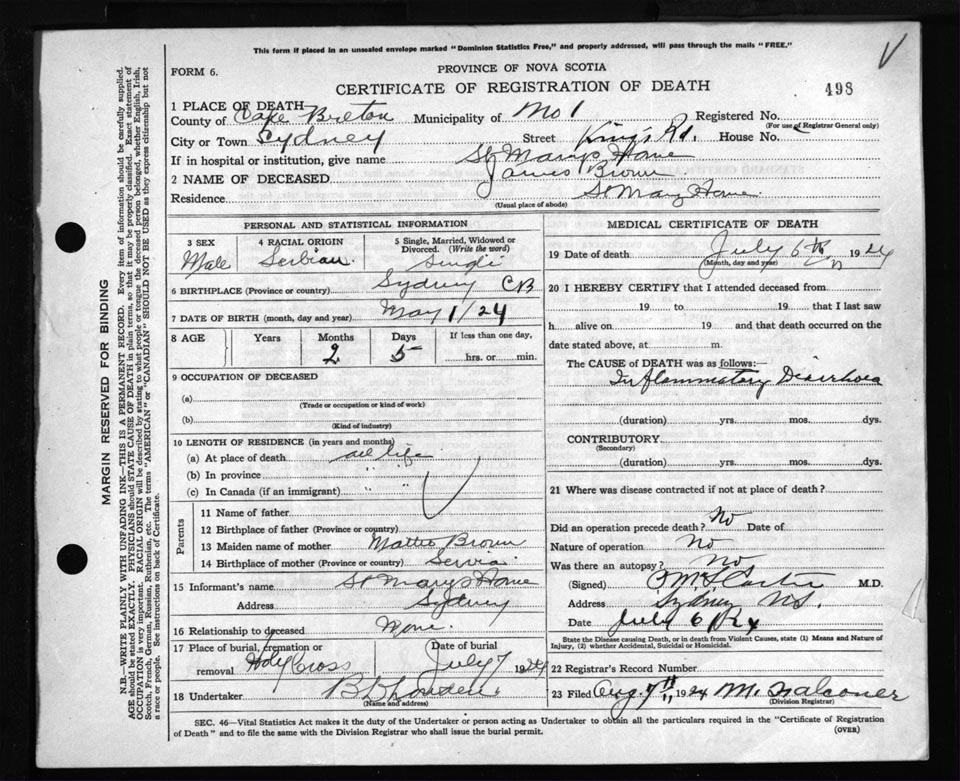 This form if placed in an unsealed envelope marked "Dominion Statistics Free," and properly addressed, will pass through the mails "FREE."
V
FORM 6.
PROVINCE OF NOVA SCOTIA
CERTIFICATE OF REGISTRATION OF DEATH
498
1 PLACE OF DEATH
County of Cape Breton Municipality of No 1 Registered No.
(For use of Registrar General only)
City or Town Sydney Street King's Rd. House No.
If in hospital or institution, give name St Mary's Home
2 NAME OF DECEASED James Brown
Residence St Mary Home
(Usual place of abode)
PERSONAL AND STATISTICAL INFORMATION
3 SEX 4 RACIAL ORIGIN 5 Single, Married, Widowed or Divorced. (Write the word)
Male Serbian Single
6 BIRTHPLACE (Province or country) Sydney CB
7 DATE OF BIRTH (month, day and year) May 1/24
8 AGE Years Months Days If less than one day,
2 5 hrs. or min.
9 OCCUPATION OF DECEASED
(a)
(Trade or occupation or kind of work)
(b)
(Kind of industry)
10 LENGTH OF RESIDENCE (in years and months)
(a) At place of death all life
(b) In province " "
(c) In Canada (if an immigrant) " "
Parents
11 Name of father
12 Birthplace of father (Province or country)
13 Maiden name of mother Matteo Brown
14 Birthplace of mother (Province or country) Servia
15 Informant's name St Marys Home
Address Sydney
16 Relationship to deceased None.
17 Place of burial, cremation or removal Holy Cross Date of burial July 7 1924
18 Undertaker
(Name and address)
MEDICAL CERTIFICATE OF DEATH
19 Date of death July 6th 1924
(Month, day and year)
20 I HEREBY CERTIFY that I attended deceased from
19 to 19 that I last saw
h alive on 19 and that death occurred on the
date stated above, at m.
The CAUSE OF DEATH was as follows:—
Inflammatory Diarrhoea
(duration) yrs. mos. dys.
CONTRIBUTORY
(Secondary)
(duration) yrs. mos. dys.
21 Where was disease contracted if not at place of death?
Did an operation precede death? No Date of
Nature of operation No
Was there an autopsy? No
(Signed) M.D.
Address Sydney N.S.
Date July 6/24
State the Disease causing Death, or in death from Violent Causes, state (1) Means and Nature of
Injury, (2) whether Accidental, Suicidal or Homicidal.
22 Registrar's Record Number
23 Filed Aug 7 1924 M. Falconer
(Division Registrar)
SEC. 46—Vital Statistics Act makes it the duty of the Undertaker or person acting as Undertaker to obtain all the particulars required in the "Certificate of Registration
of Death" and to file the same with the Division Registrar who shall issue the burial permit.
(OVER)
MARGIN RESERVED FOR BINDING
N.B.—WRITE PLAINLY WITH UNFADING INK—THIS IS A PERMANENT RECORD. Every item of information should be carefully supplied.
AGE should be stated EXACTLY. PHYSICIANS should STATE CAUSE OF DEATH in plain terms, so that it may be properly classified. Exact statement of
OCCUPATION is very important. RACIAL ORIGIN will be described by stating to what people or tongue the deceased person belonged, whether English, Irish,
Scotch, French, German, Russian, Ruthenian, etc. The terms "AMERICAN" or "CANADIAN" SHOULD NOT BE USED as they express citizenship but not
a race or people. See instructions on back of Certificate.